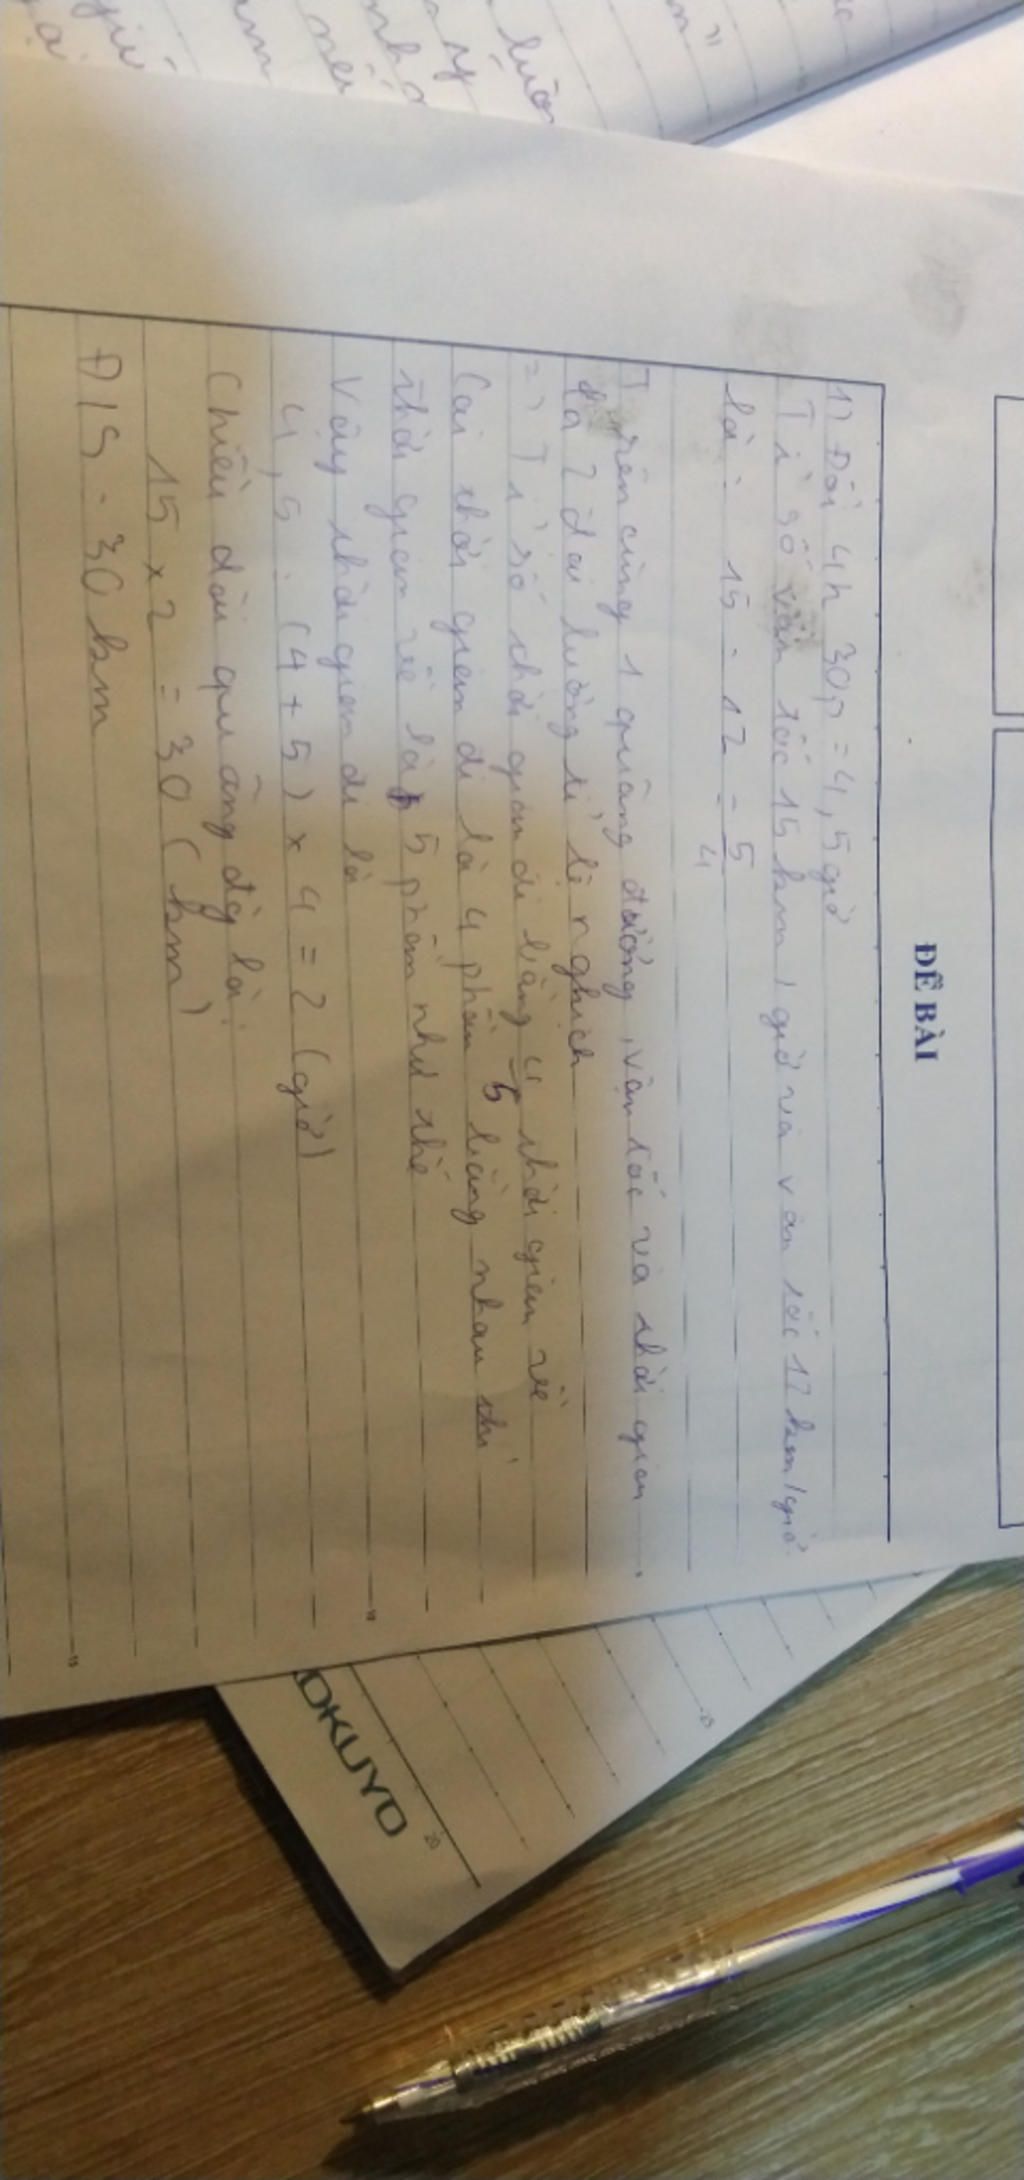 ĐỀ BÀI
1) Đổi 4h 30p = 4,5 giờ
Tỉ số vận tốc 15 km / giờ và vận tốc 12 km/giờ
là : 15 : 12 = 5/4
Trên cùng 1 quãng đường, vận tốc và thời gian
là 2 đại lượng tỉ lệ nghịch
=> Tỉ số thời gian đi bằng 4/5 thời gian về
Coi thời gian đi là 4 phần bằng nhau thì
thời gian về là 5 phần như thế
Vậy thời gian đi là
4,5 : (4 + 5) x 4 = 2 (giờ)
Chiều dài quãng đg là :
15 x 2 = 30 (km)
Đ/S : 30 km
10
15
25
KOKUYO
20